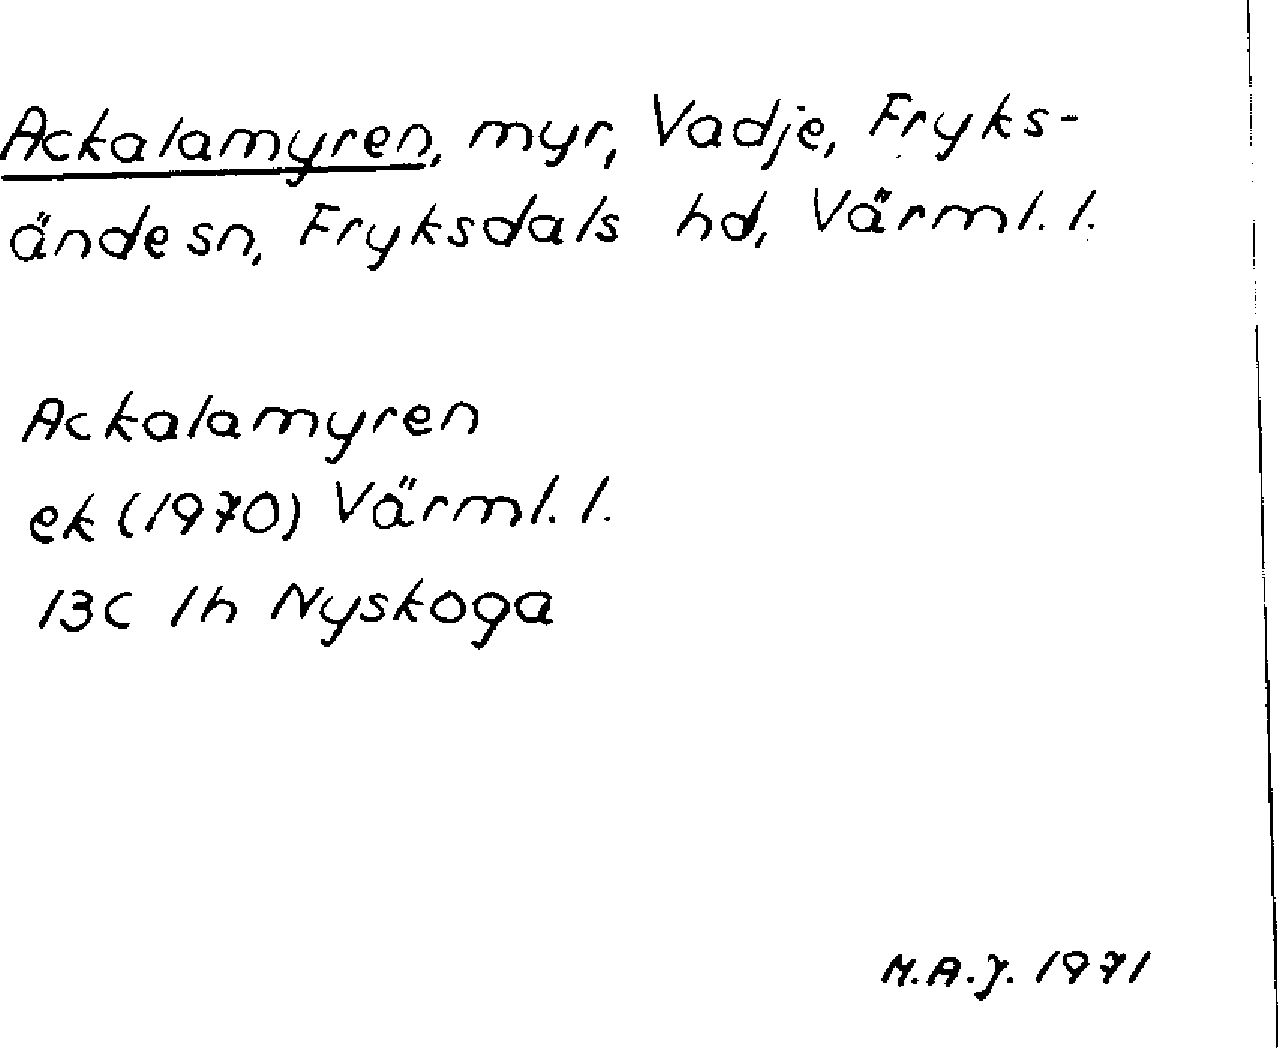 Ackalamyren, myr, Vadje, Fryks-
ände sn, Fryksdals hd, Värml. l.
Ackalamyren
ek (1970) Värml. l.
13C 1h Nyskoga
M.A.J. 1971